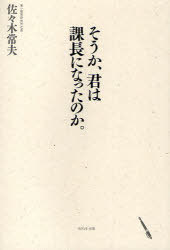 そうか、君は
課長になったのか。
佐々木常夫